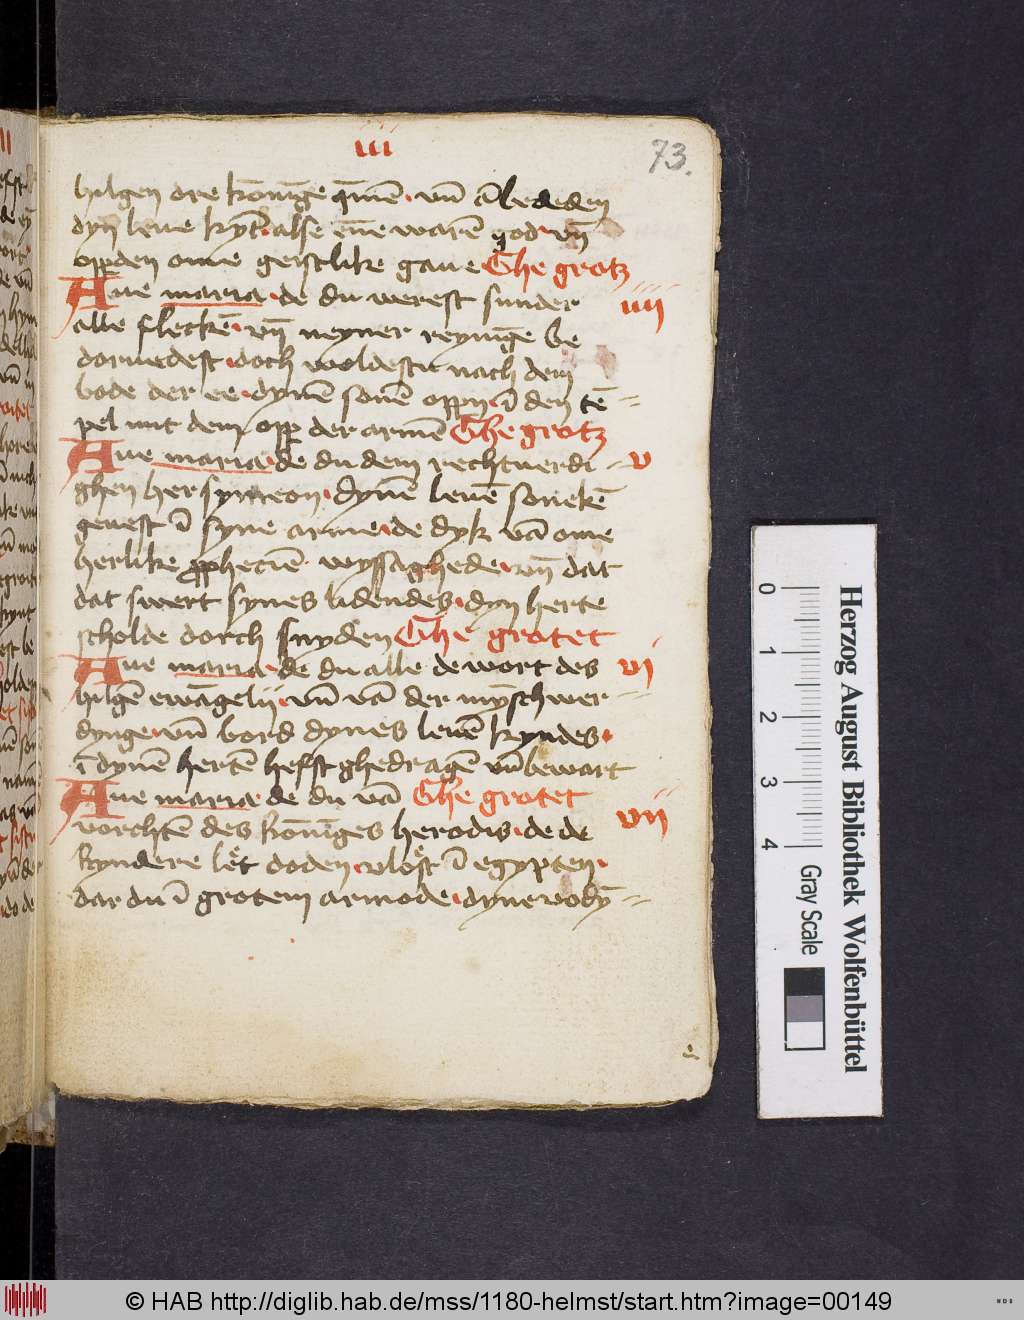 iii
73.
hilgen dre konīge q̄mē · vn̄ ābededen
dyn leue kynt · alse ene warē god · vn̄
opp̱den ome geistlike gaue Ghe grotz
Aue maria · de du werest sunder iiii
alle fleckē · vn̄ neyner reynīge be
doruedest · doch woldestu nach dem
bode der ee · dynē sonē oppn · ī den tē=
pel mit dem opp der armē Ghe grotz
Aue maria · de du dem rechtuerdi= v
ghen her symeon · dynē leuē sonekē
geuest ī syne arme · de dyk vā ome
herlike ꝓphecien · wyssaghede · vn̄ dat
dat swert synes lidendes · dyn herte
scholde dorch snyden Ghe grotet
Aue maria · de du alle de wort des vi
hilgē ewāgelij · vn̄ vā der mȳschwer=
dynge · vn̄ bord dynes leuē kyndes ·
ī dynē hertē hefst ghedragē vn̄ bewart
Aue maria · de du vā Ghe grotet vii
vorchtē des konīges herodis · de de
kyndere let doden · vlost ī egypten ·
dar du ī grotem armode · dyne vody=
0 1 2 3 4
Herzog August Bibliothek Wolfenbüttel
Gray Scale
© HAB http://diglib.hab.de/mss/1180-helmst/start.htm?image=00149